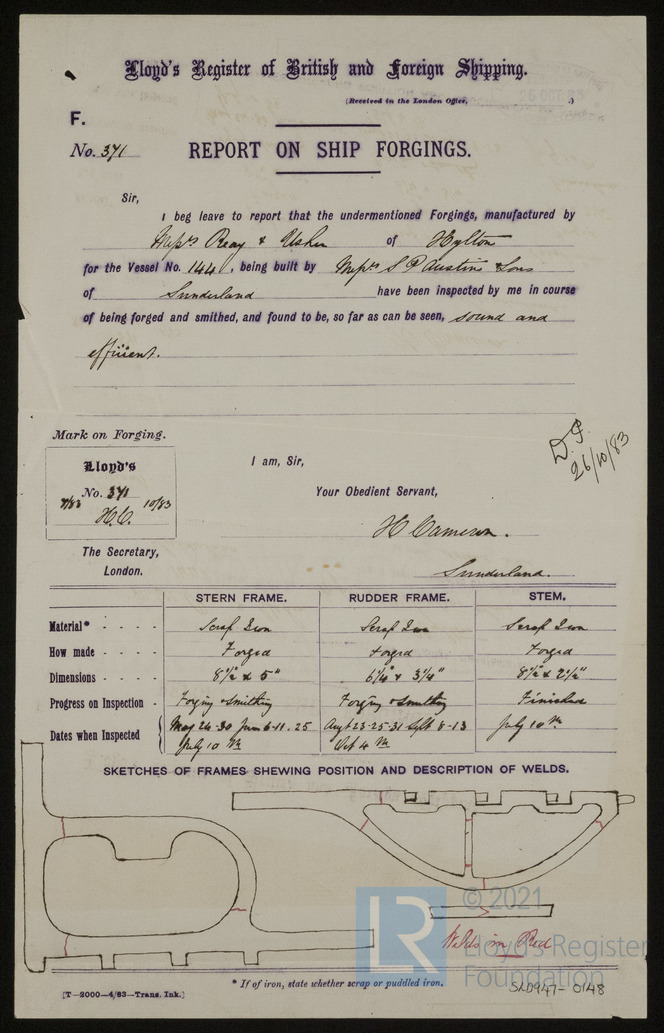 Lloyd's Register of British and Foreign Shipping.
(Received in the London Office, 26 OCT 83 .)
F.
No. 371 REPORT ON SHIP FORGINGS.
Sir,
I beg leave to report that the undermentioned Forgings, manufactured by
Messrs Reay & Usher of Hylton
for the Vessel No. 144, being built by Messrs S P Austin & Sons
of Sunderland have been inspected by me in course
of being forged and smithed, and found to be, so far as can be seen, sound and
efficient.
D.P.
26/10/83
Mark on Forging.
Lloyd's
No. 371
7/83 10/83
H.C.
I am, Sir,
Your Obedient Servant,
H Cameron.
Sunderland.
The Secretary,
London.
STERN FRAME. RUDDER FRAME. STEM.
Material* Scrap Iron Scrap Iron Scrap Iron
How made Forged Forged Forged
Dimensions 8½ x 5" 6¼" x 3¼" 8½" x 2½"
Progress on Inspection Forging & Smithing Forging & Smithing Finished
Dates when Inspected May 24-30 June 6-11.25 Aug 23-25-31 Sept 8-13 July 10th
July 10th Oct 4th
SKETCHES OF FRAMES SHEWING POSITION AND DESCRIPTION OF WELDS.
Welds in Red
* If of iron, state whether scrap or puddled iron.
[T—2000—4/83—Trans. Ink.]
SLD947-0148
LR
© 2021
Lloyd's Register
Foundation